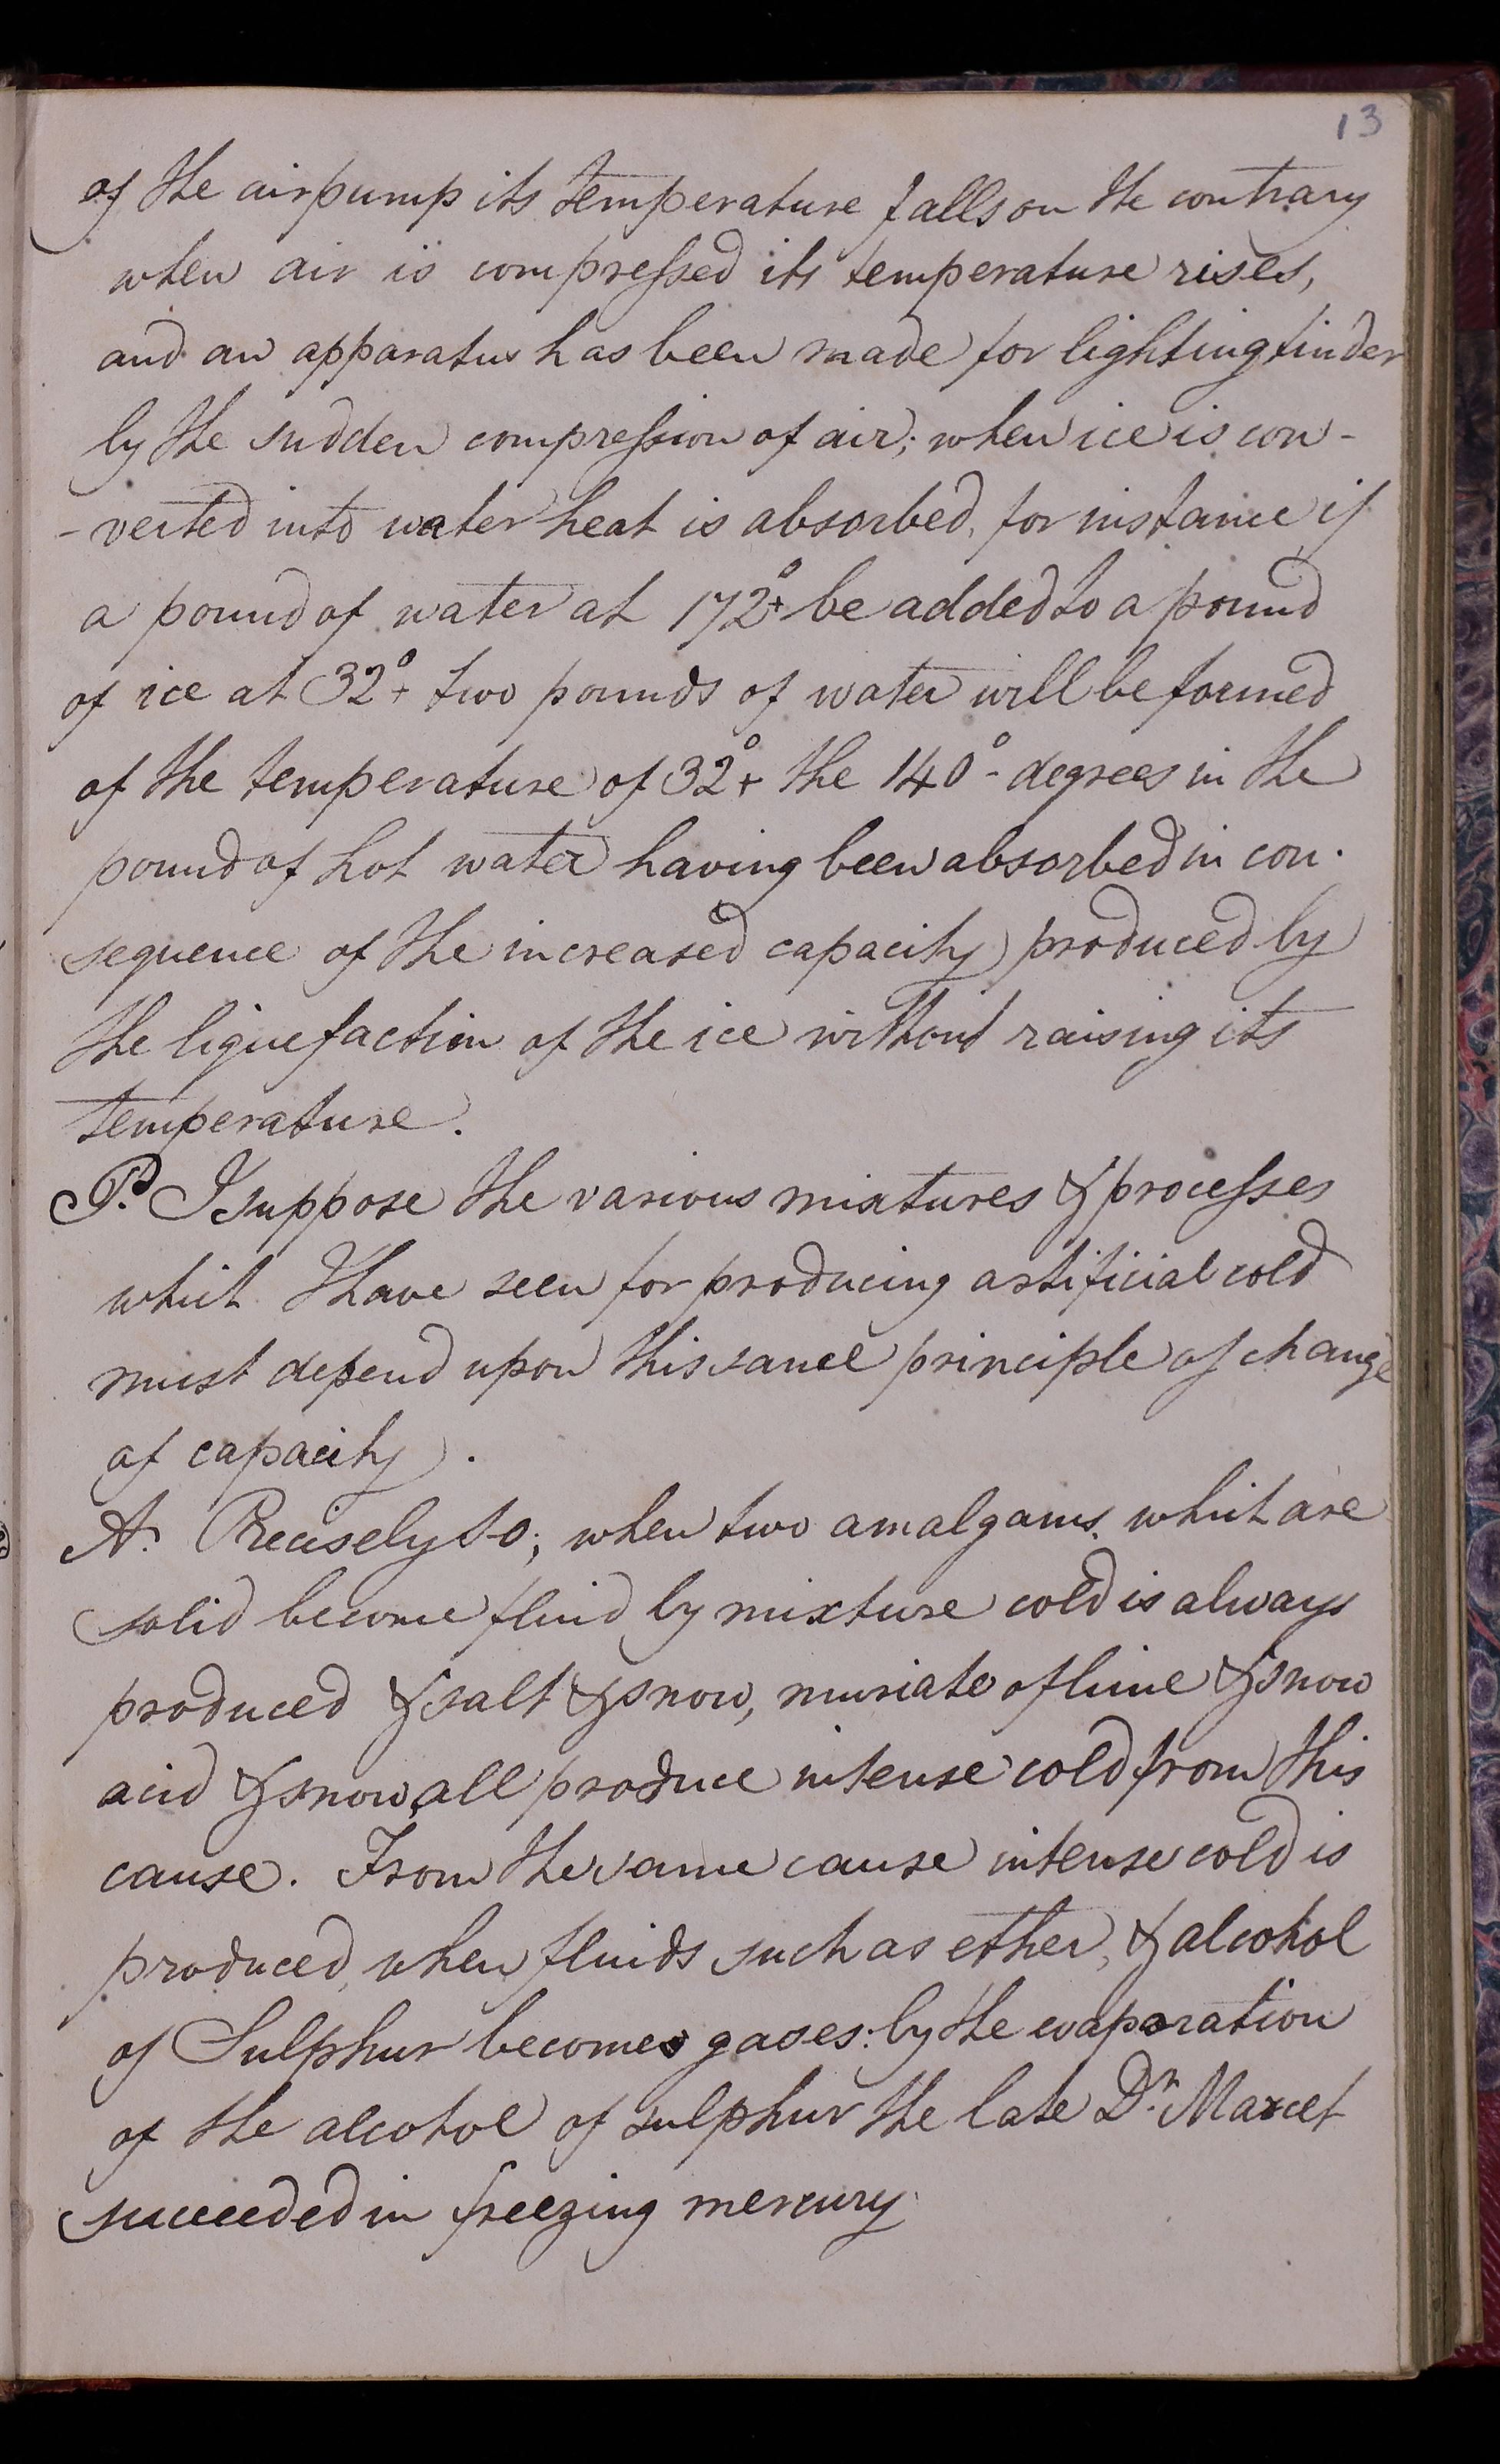 13
of the airpump its temperature falls on the contrary
when air is compressed its temperature rises,
and an apparatus has been made for lighting tinder
by the sudden compression of air; when ice is con-
-verted into water heat is absorbed, for instance if
a pound of water at 172°+ be added to a pound
of ice at 32°+ two pounds of water will be formed
of the temperature of 32°+ the 140°- degrees in the
pound of hot water having been absorbed in con-
sequence of the increased capacity produced by
the liquefaction of the ice without raising its
temperature.
P. I suppose the various mixtures & processes
which I have seen for producing artificial cold
must depend upon this same principle of change
of capacity.
A. Precisely so; when two amalgams which are
solid become fluid by mixture cold is always
produced & salt & snow, muriate of lime & snow
acid & snow, all produce intense cold from this
cause. From the same cause intense cold is
produced, when fluids such as ether, & alcohol
of Sulphur becomes gases: by the evaporation
of the alcohol of sulphur the late Dr. Marcet
succeeded in freezing mercury.